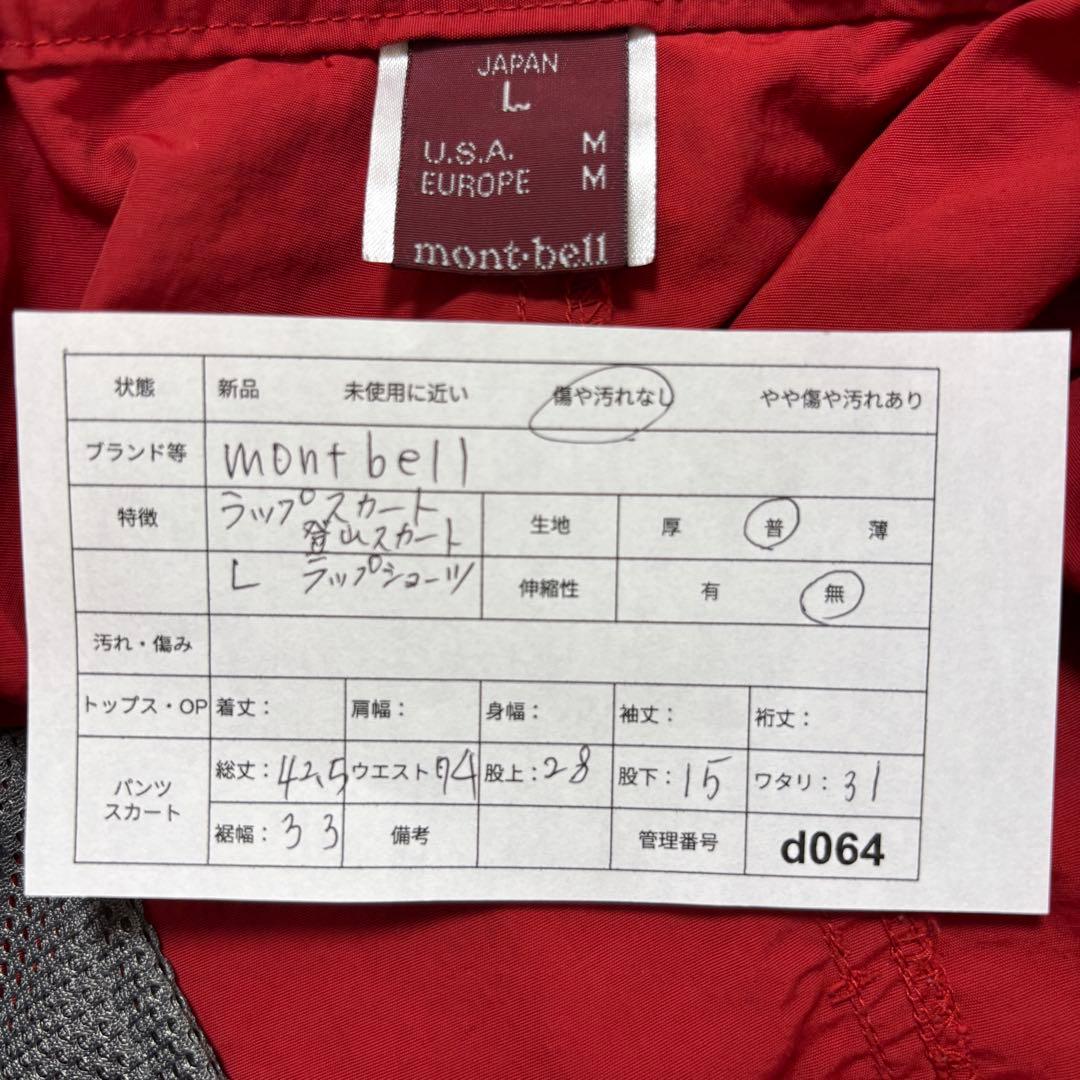 JAPAN
L
U.S.A. M
EUROPE M
mont·bell
状態 新品 未使用に近い 傷や汚れなし やや傷や汚れあり
ブランド等 mont bell
特徴 ラップスカート 生地 厚 普 薄
登山スカート
L ラップショーツ 伸縮性 有 無
汚れ・傷み
トップス・OP 着丈： 肩幅： 身幅： 袖丈： 裄丈：
パンツ スカート 総丈：42.5 ウエスト74 股上：28 股下：15 ワタリ：31
裾幅：33 備考 管理番号 d064